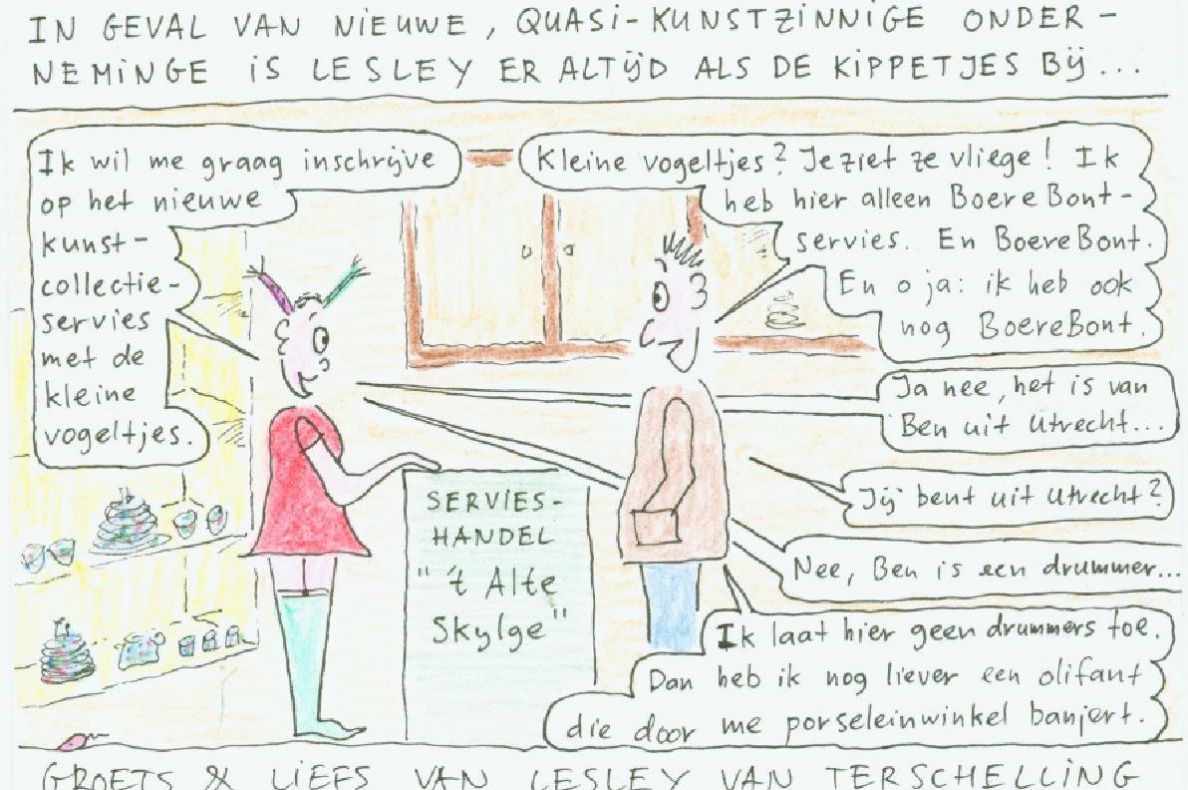 IN GEVAL VAN NIEUWE, QUASI-KUNSTZINNIGE ONDER-
NEMINGE IS LESLEY ER ALTIJD ALS DE KIPPETJES BIJ...
Ik wil me graag inschrijve
op het nieuwe
kunst-
collectie-
servies
met de
kleine
vogeltjes.
Kleine vogeltjes? Je ziet ze vliege! Ik
heb hier alleen BoereBont-
servies. En BoereBont.
En o ja: ik heb ook
nog BoereBont.
Ja nee, het is van
Ben uit Utrecht...
Jij bent uit Utrecht?
Nee, Ben is een drummer...
Ik laat hier geen drummers toe.
Dan heb ik nog liever een olifant
die door me porseleinwinkel banjert.
SERVIES-
HANDEL
"'t Alte
Skylge"
GROETS & LIEFS VAN LESLEY VAN TERSCHELLING